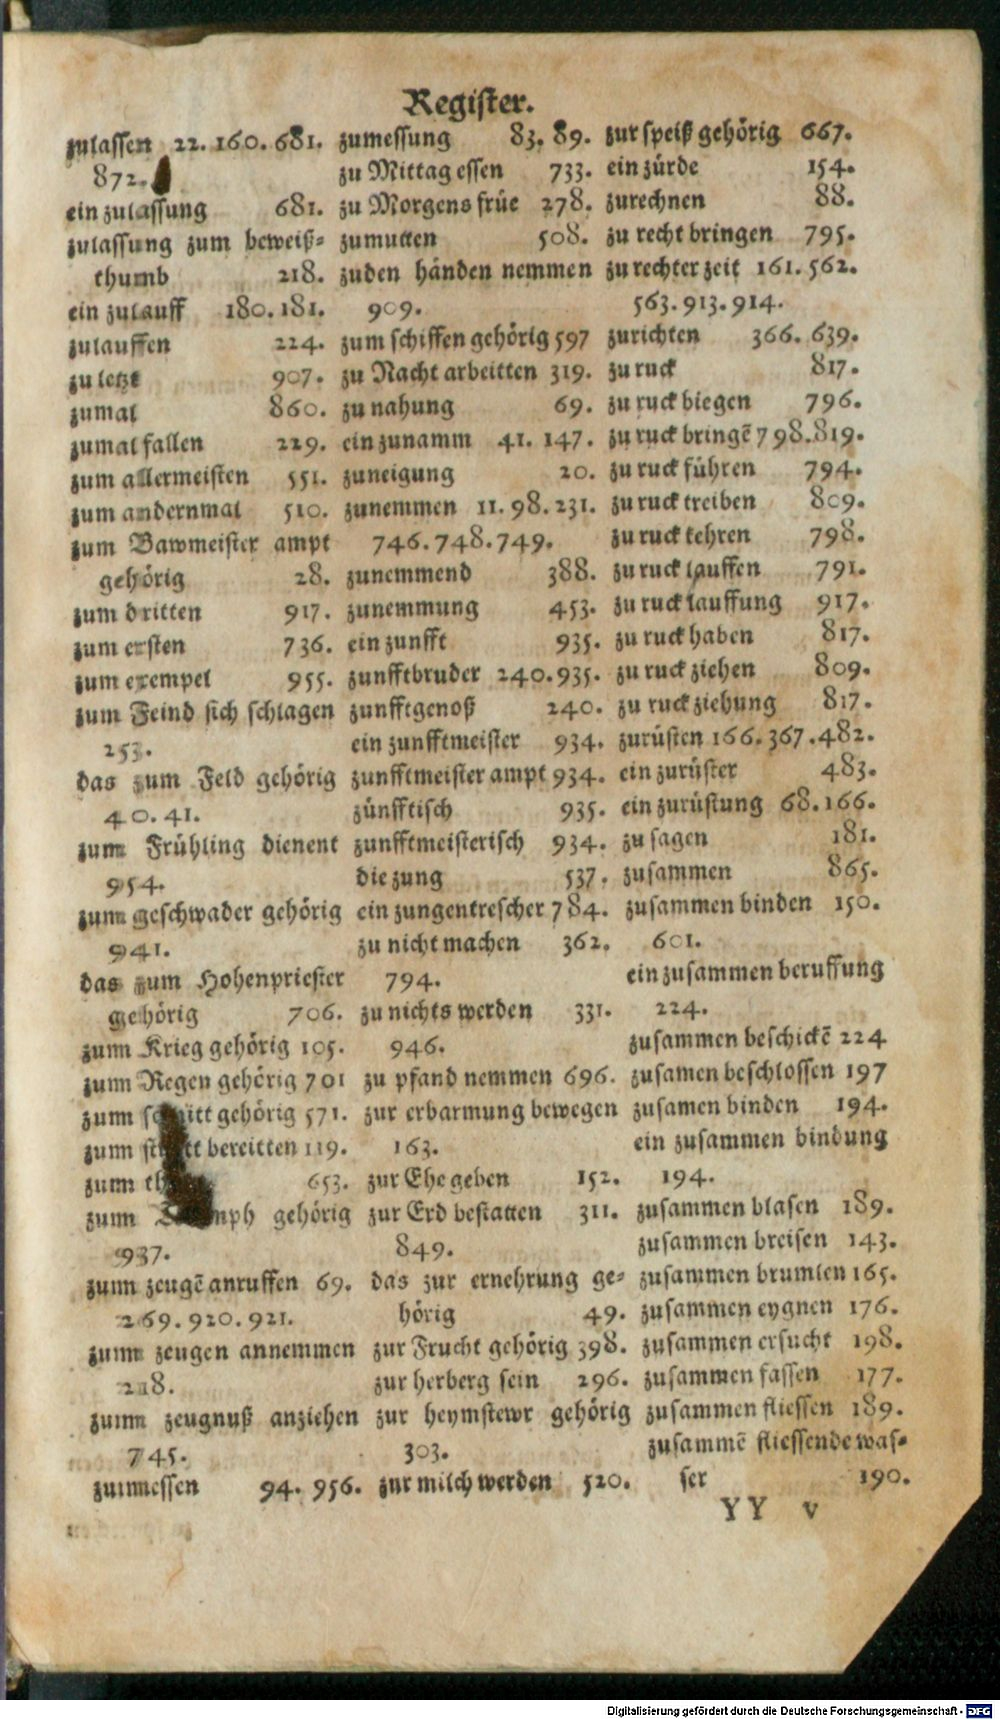 Register.
zulassen 22. 160. 681.
872.
ein zulassung 681.
zulassung zum beweiß-
thumb 218.
ein zulauff 180. 181.
zulauffen 224.
zu letzt 907.
zumal 860.
zumal fallen 229.
zum allermeisten 551.
zum andernmal 510.
zum Bawmeister ampt
gehörig 28.
zum dritten 917.
zum ersten 736.
zum exempel 955.
zum Feind sich schlagen
253.
das zum Feld gehörig
40. 41.
zum Frühling dienent
954.
zum geschwader gehörig
941.
das zum Hohenpriester
gehörig 706.
zum Krieg gehörig 105.
zum Regen gehörig 701
zum schnitt gehörig 571.
zum bereitten 119.
zum 653.
zum gehörig
937.
zum zeugē anruffen 69.
269. 920. 921.
zum zeugen annemmen
218.
zum zeugnuß anziehen
745.
zumessen 94. 956.
zumessung 83. 89.
zu Mittag essen 733.
zu Morgens früe 278.
zumutten 508.
zu den händen nemmen
909.
zum schiffen gehörig 597
zu Nacht arbeitten 319.
zu nahung 69.
ein zunamm 41. 147.
zuneigung 20.
zunemmen 11. 98. 231.
746. 748. 749.
zunemmend 388.
zunemmung 453.
ein zunfft 935.
zunfftbruder 240. 935.
zunfftgenoß 240.
ein zunfftmeister 934.
zunfftmeister ampt 934.
zünfftisch 935.
zunfftmeisterisch 934.
die zung 537.
ein zungentrescher 784.
zu nicht machen 362.
794.
zu nichts werden 331.
946.
zu pfand nemmen 696.
zur erbarmung bewegen
163.
zur Ehe geben 152.
zur Erd bestatten 311.
849.
das zur ernehrung ge-
hörig 49.
zur Frucht gehörig 398.
zur herberg sein 296.
zur heymstewr gehörig
303.
zur milch werden 520.
zur speiß gehörig 667.
ein zürde 154.
zurechnen 88.
zu recht bringen 795.
zu rechter zeit 161. 562.
563. 913. 914.
zurichten 366. 639.
zu ruck 817.
zu ruck biegen 796.
zu ruck bringē 798. 819.
zu ruck führen 794.
zu ruck treiben 809.
zu ruck kehren 798.
zu ruck lauffen 791.
zu ruck lauffung 917.
zu ruck haben 817.
zu ruck ziehen 809.
zu ruck ziehung 817.
zurüsten 166. 367. 482.
ein zurüster 483.
ein zurüstung 68. 166.
zu sagen 181.
zusammen 865.
zusammen binden 150.
601.
ein zusammen beruffung
224.
zusammen beschickē 224
zusamen beschlossen 197
zusamen binden 194.
ein zusammen bindung
194.
zusammen blasen 189.
zusammen breisen 143.
zusammen brumlen 165.
zusammen eygnen 176.
zusammen ersucht 198.
zusammen fassen 177.
zusammen fliessen 189.
zusammē fliessende was-
ser 190.
YY v
Digitalisierung gefördert durch die Deutsche Forschungsgemeinschaft - DFG